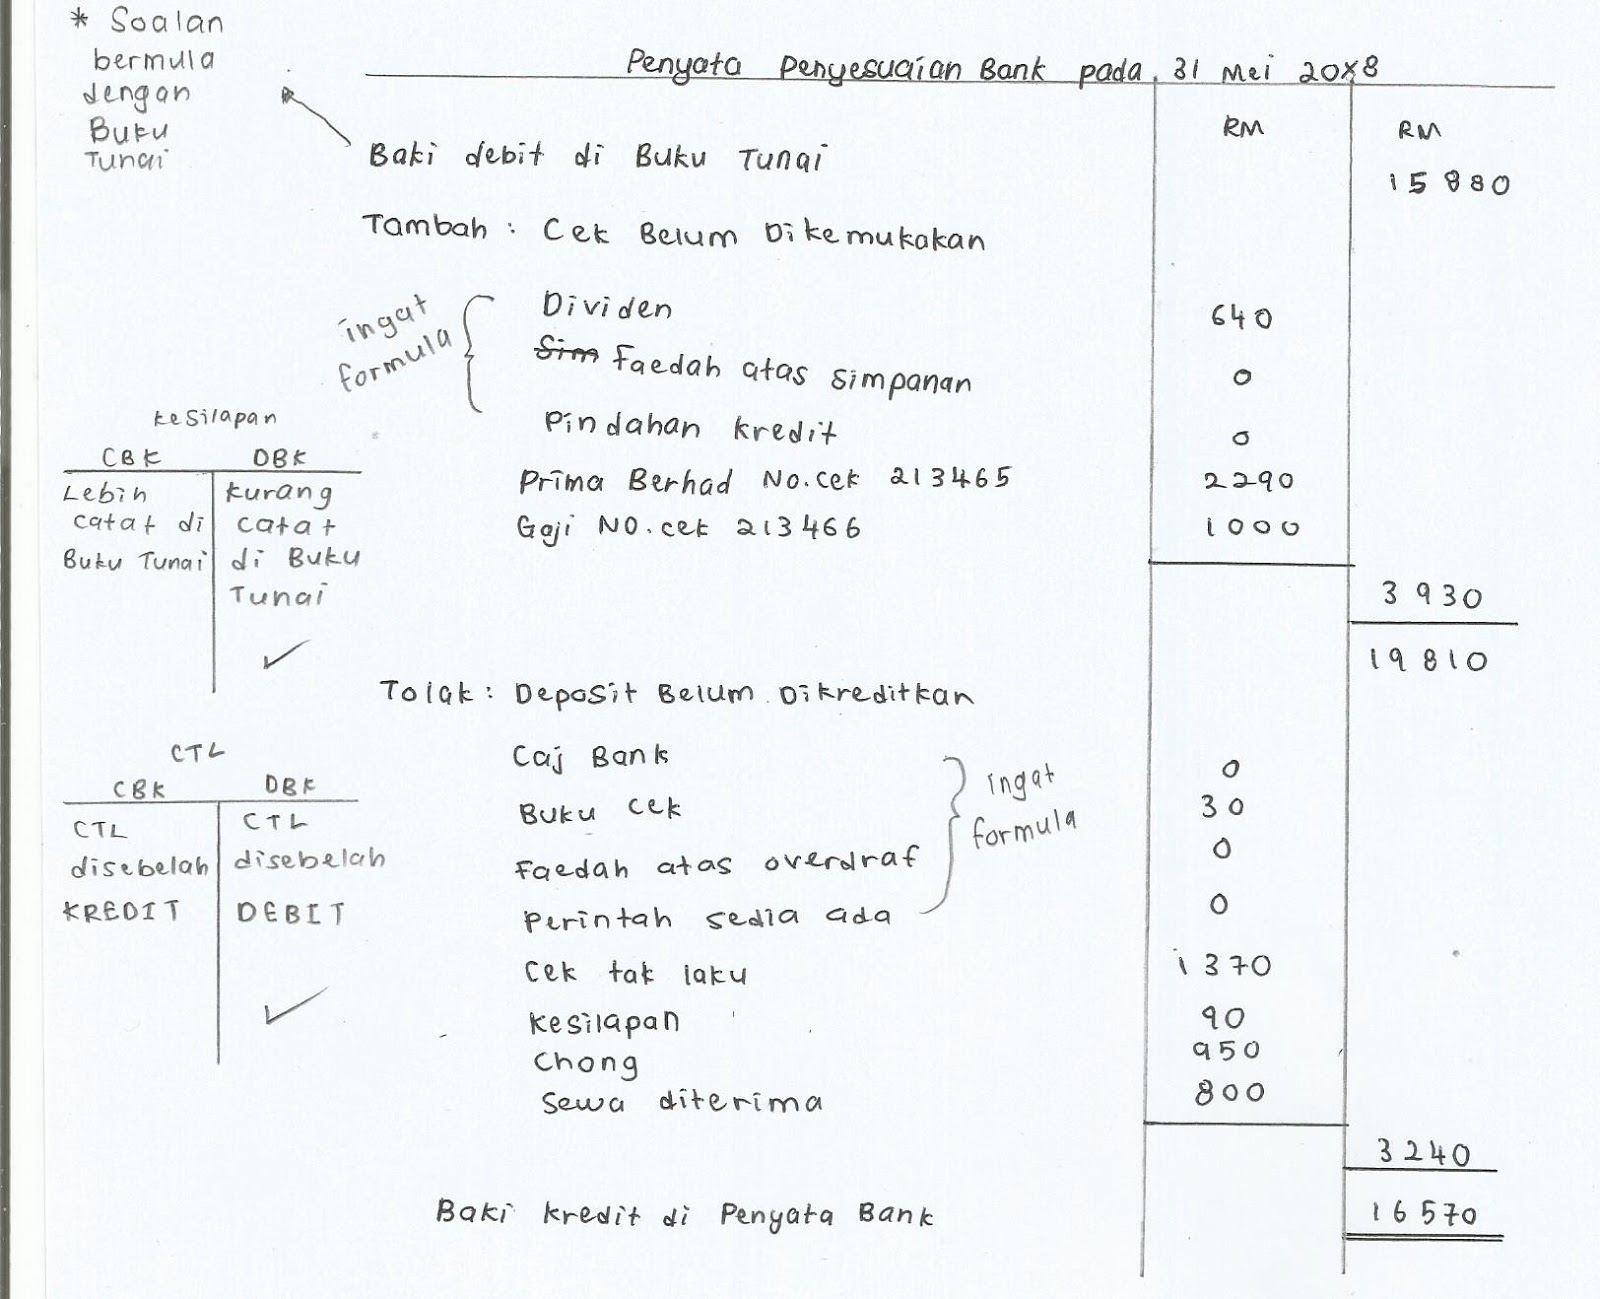 * Soalan
bermula
dengan
Buku
Tunai
Penyata Penyesuaian Bank pada 31 Mei 20X8
RM RM
Baki debit di Buku Tunai 15 880
Tambah : Cek Belum Dikemukakan
ingat
formula
Dividen 640
Sim Faedah atas simpanan 0
Pindahan kredit 0
Prima Berhad No.cek 213465 2290
Gaji No.cek 213466 1000
3 930
19 810
kesilapan
CBK DBK
Lebih
catat di
Buku Tunai
kurang
catat
di Buku
Tunai
✓
Tolak : Deposit Belum Dikreditkan
Caj Bank 0
Buku cek 30
Faedah atas overdraf 0
Perintah sedia ada 0
ingat
formula
Cek tak laku 1370
kesilapan 90
Chong 950
Sewa diterima 800
3 240
Baki kredit di Penyata Bank 16 570
CTL
CBK DBK
CTL
disebelah
KREDIT
CTL
disebelah
DEBIT
✓